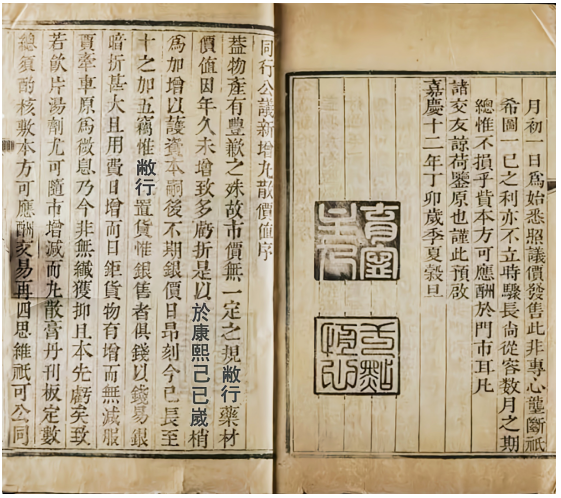 月初一日爲始悉照議價發售此非專心壟斷祇
希圖一己之利亦不立時驟長尙從容數月之期
總惟不損乎貲本方可應酬於門市耳凡
諸交友諒荷鑒原也謹此預啟
嘉慶十二年丁卯歲季夏穀旦
同行公議新增丸散價値序
蓋物產有豐歉之殊故市價無一定之規敝行藥材
價値因年久未增致多虧折是以於康熙己巳歲稍
爲加增以護資本嗣後不期銀價日昂刻今已長至
十之加五竊惟敝行置貨惟銀售者俱錢以錢易銀
暗折甚大且用費日增而日鉅貨物有增而無減服
賈牽車原爲微息乃今非無纖獲抑且本先虧矣致
若飮片湯劑尤可隨市增減而丸散膏丹刊板定數
總須酌核敷本方可應酬交易再四思維祇可公同